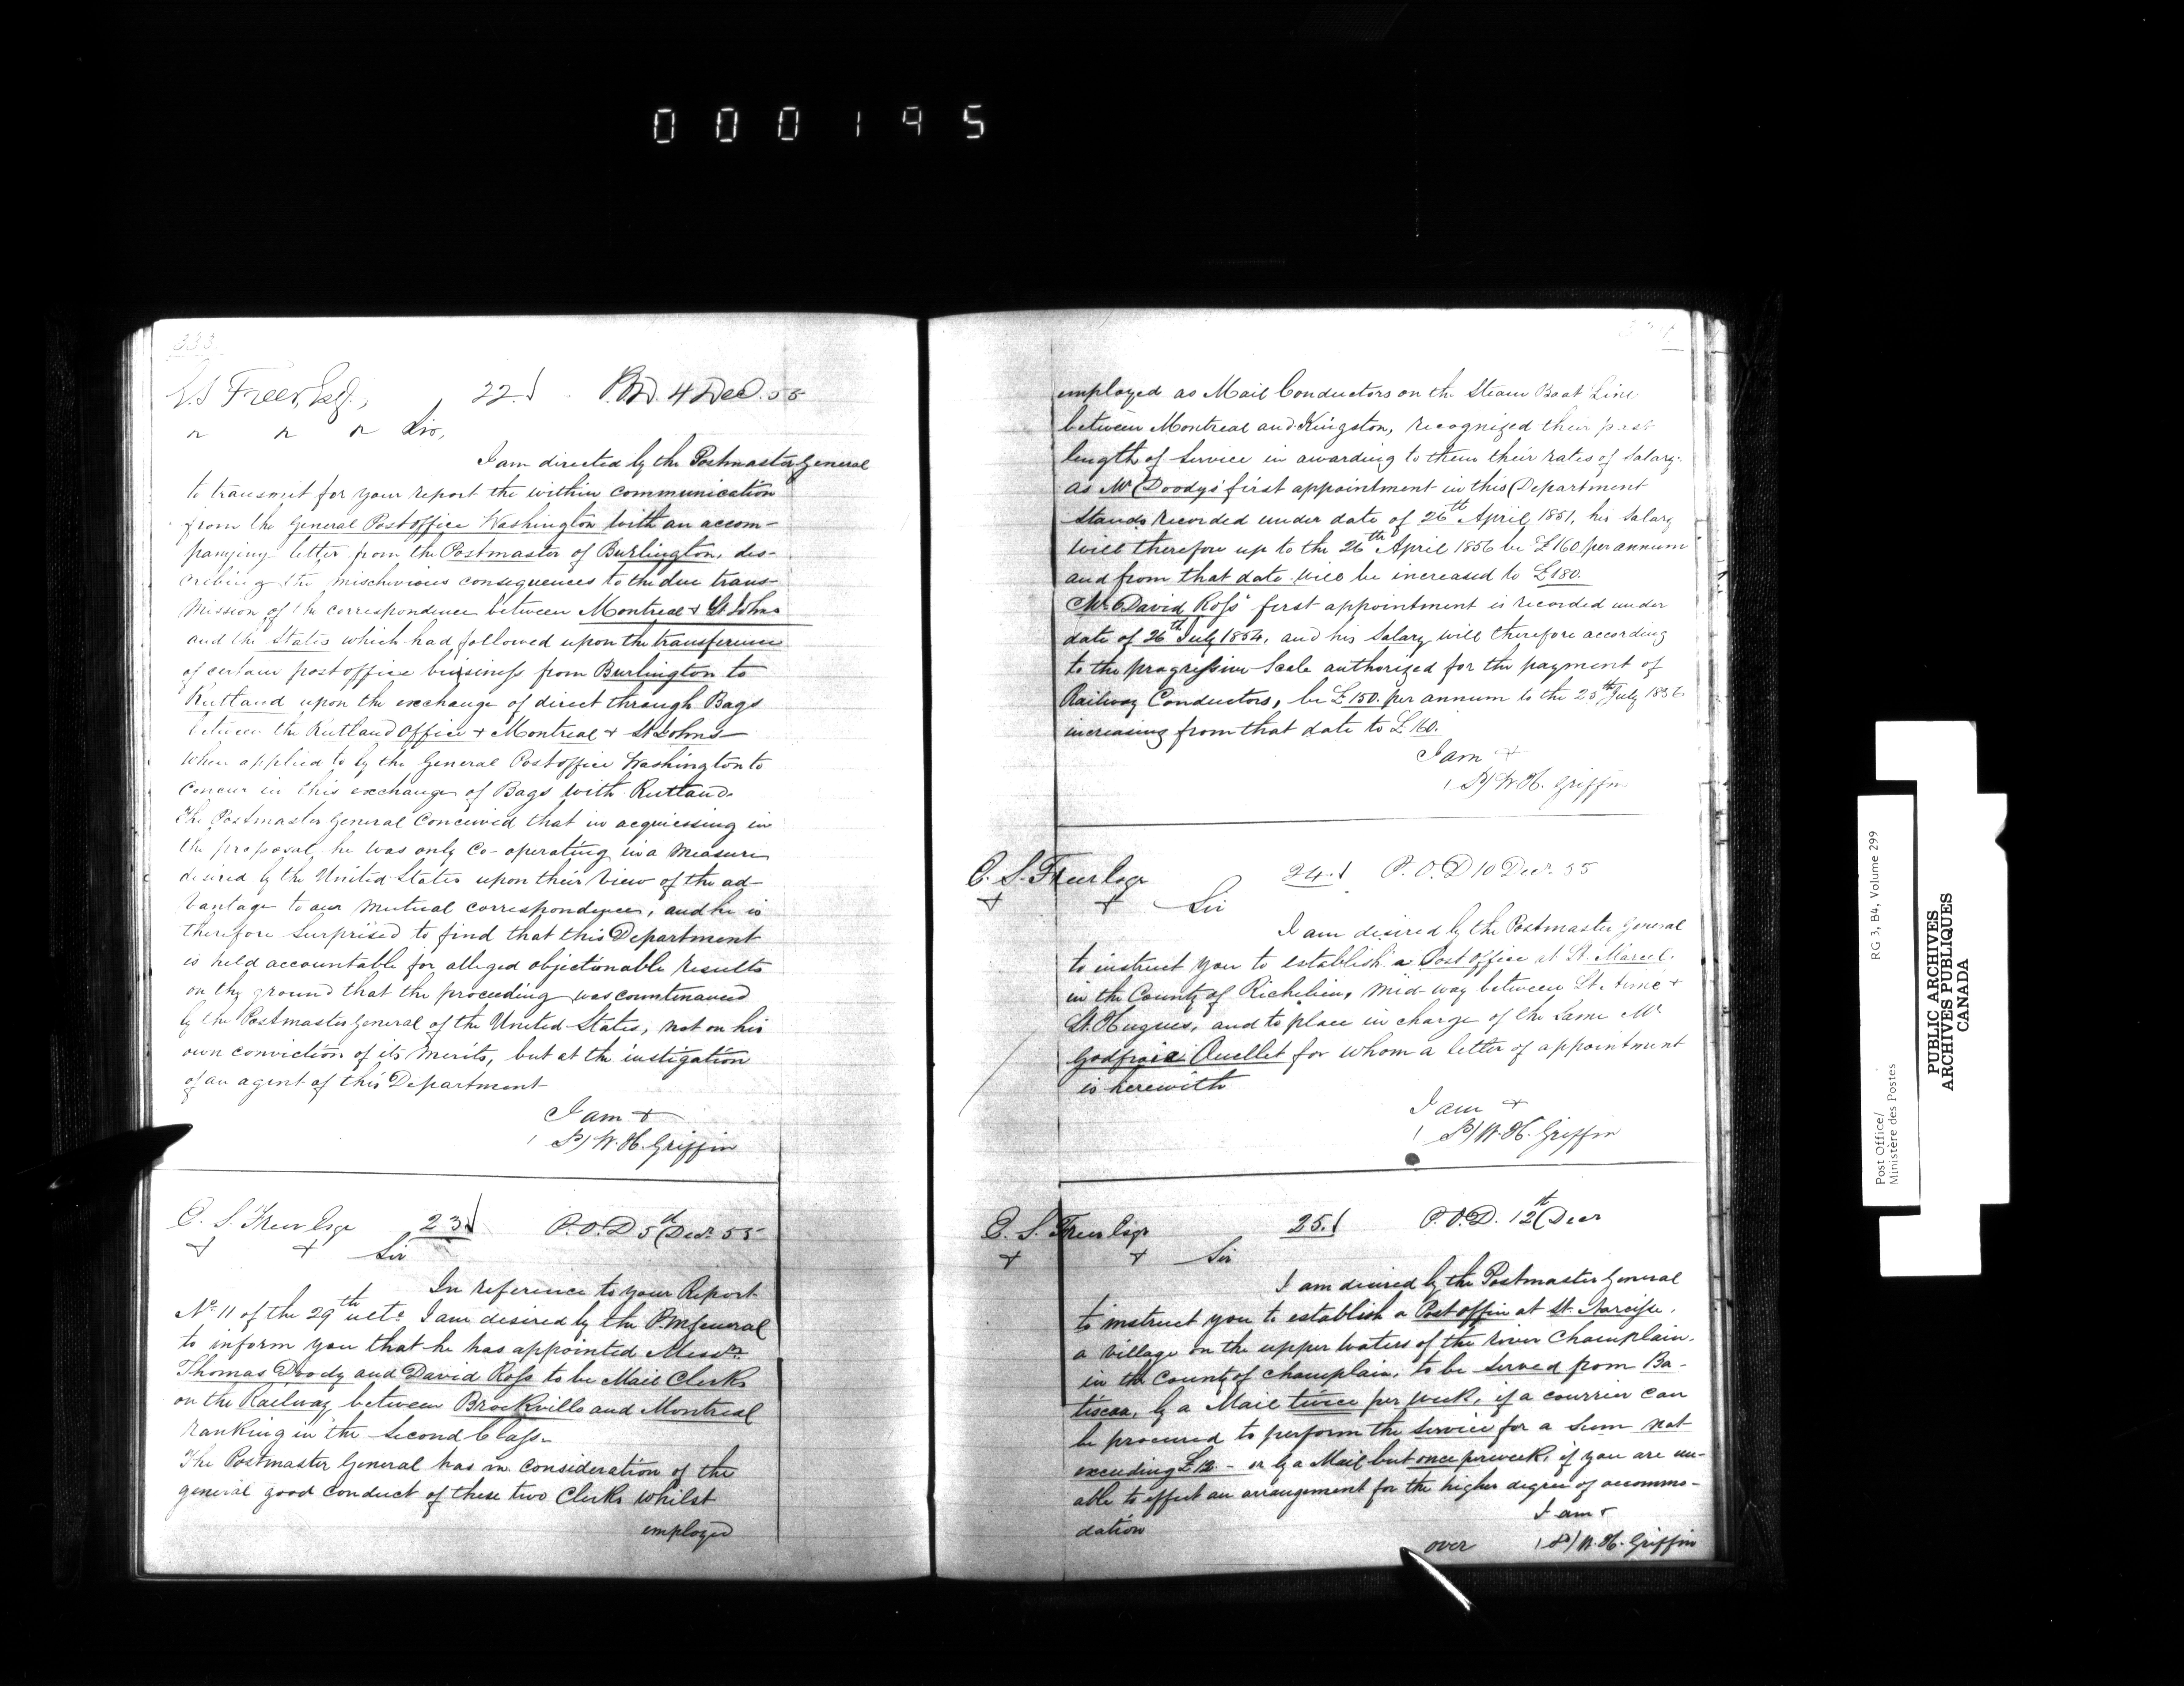 000195
333
E.S Freer, Esq., 22. P.O.D. 4 Dec. 55
" " " Sir,
I am directed by the Postmaster General
to transmit for your report the within communication
from the General Post office Washington with an accom-
panying letter from the Postmaster of Burlington, des-
cribing the mischevious consequences to the due trans-
mission of the correspondence between Montreal & St Johns
and the States which had followed upon the transference
of certain post office business from Burlington to
Rutland upon the exchange of direct through Bags
between the Rutland Office & Montreal & St Johns
When applied to by the General Post office Washington to
concur in this exchange of Bags with Rutland.
The Postmaster General conceived that in acquiessing in
the proposal he was only Co-operating in a measure
desired by the United States upon their view of the ad-
vantage to our mutual correspondence, and he is
therefore surprised to find that this Department
is held accountable for alleged objectionable results
on the ground that the proceeding was countenanced
by the Postmaster General of the United States, not on his
own conviction of its merits, but at the instigation
of an agent of this Department
I am &
(S) W.H. Griffin
E. S. Freer Esqr 23 P.O.D 5th Decr 55
& & Sir
In reference to your Report
No 11 of the 29th ulto I am desired by the P.M General
to inform you that he has appointed Messrs
Thomas Doody and David Ross to be Mail Clerks
on the Railway between Brockville and Montreal
ranking in the second Class.
The Postmaster General has in consideration of the
general good conduct of these two Clerks whilst
employed
employed as Mail Conductors on the Steam Boat Line
between Montreal and Kingston, recognized their past
length of service in awarding to them their rates of Salary.
as Mr Doody's first appointment in this Department
stands recorded under date of 26th April 1851, his Salary
will therefore up to the 26th April 1856 be £160 per annum
and from that date will be increased to £180.
Mr David Ross' first appointment is recorded under
date of 26th July 1854, and his Salary will therefore according
to the progressive Scale authorized for the payment of
Railway Conductors, be £150. per annum to the 25th July 1856
increasing from that date to £160.
I am &
(S) W.H. Griffin
E. S. Freer Esqr 24. P.O.D 10 Decr 55
& & Sir
I am desired by the Postmaster General
to instruct you to establish a Post office at St. Marcel.
in the County of Richelieu, mid-way between St. Aimé &
St. Hugues, and to place in charge of the same Mr
Godfroie Ouellet for whom a letter of appointment
is herewith
I am &
(S) W.H. Griffin
E. S. Freer Esqr 25. P.O.D. 12th Decr
& & Sir
I am desired by the Postmaster General
to instruct you to establish a Post office at St. Narcisse,
a village on the upper waters of the river Champlain,
in the County of Champlain, to be served from Ba-
tiscan, by a Mail twice per week, if a courrier can
be procured to perform the service for a sum not
exceeding £12 - or by a Mail but once per week, if you are un-
able to effect an arrangement for the higher degree of accommo-
dation
I am &
over (S) W.H. Griffin
Post Office/ RG 3, B4, Volume 299
Ministère des Postes
PUBLIC ARCHIVES
ARCHIVES PUBLIQUES
CANADA